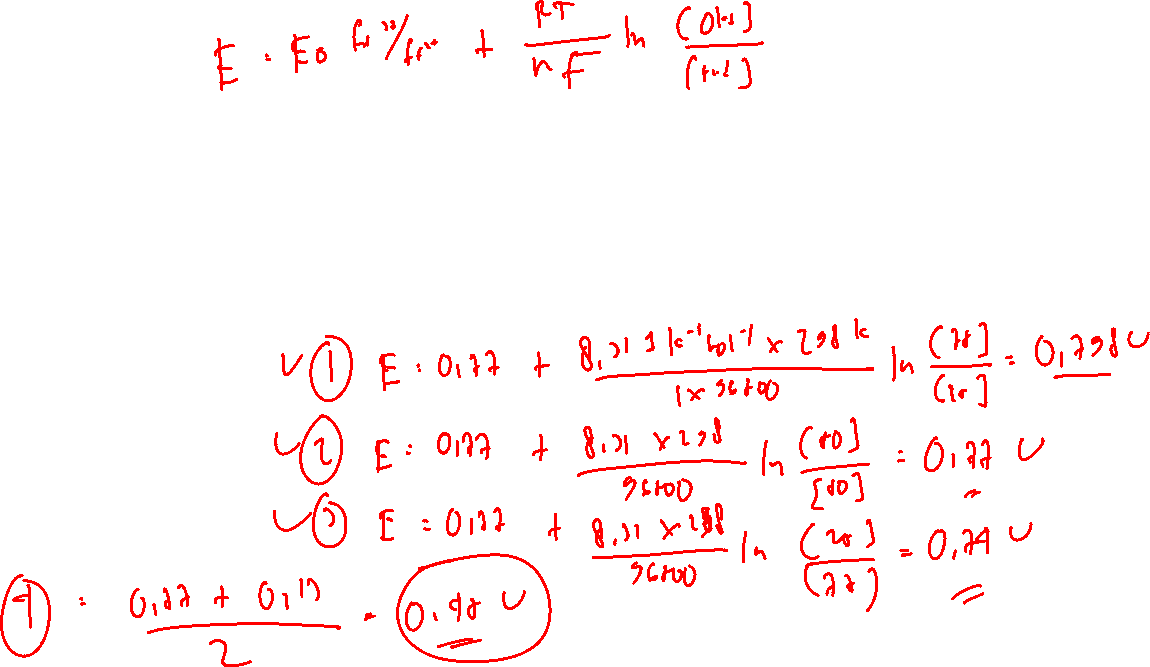 E = E₀ Fe³⁺/Fe²⁺ + RT/nF ln [Oks]/[red]
① E = 0,77 + 8,31 J K⁻¹ mol⁻¹ × 298 K / 1 × 96500 ln [75]/[25] = 0,798 V
② E = 0,77 + 8,31 × 298 / 96500 ln [50]/[50] = 0,77 V
③ E = 0,77 + 8,31 × 298 / 96500 ln [25]/[75] = 0,74 V
④ = 0,77 + / 2 =